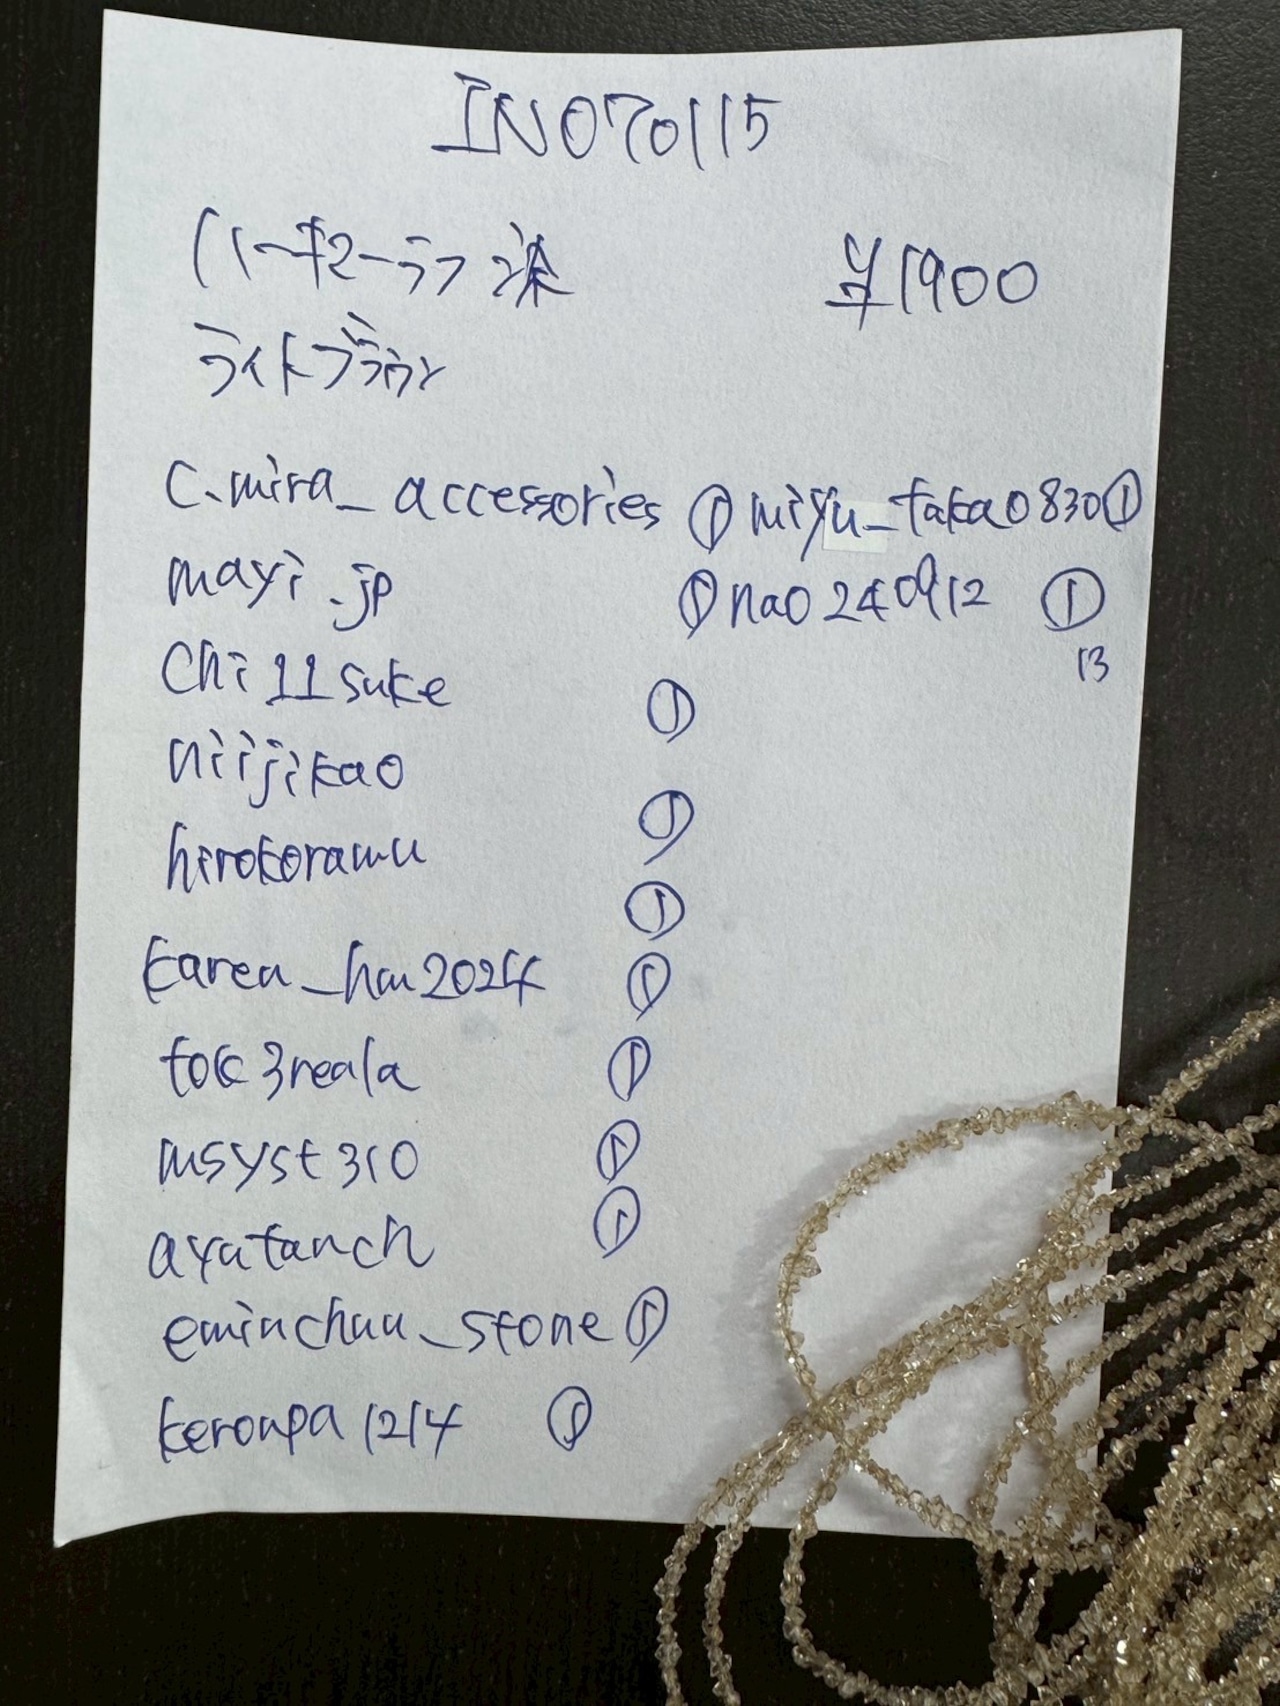 IN070115
ハーキマーラフ 染 ¥1900
ライトブラウン
c.mira_accessories ① miyu_taka0830 ①
mayi.jp ① nao240912 ①
13
chi11suke ①
niijikao ①
hirokoramu ①
karen_hm2024 ①
tok3reala ①
msyst310 ①
ayatanch ①
eminchuu_stone ①
keronpa1214 ①